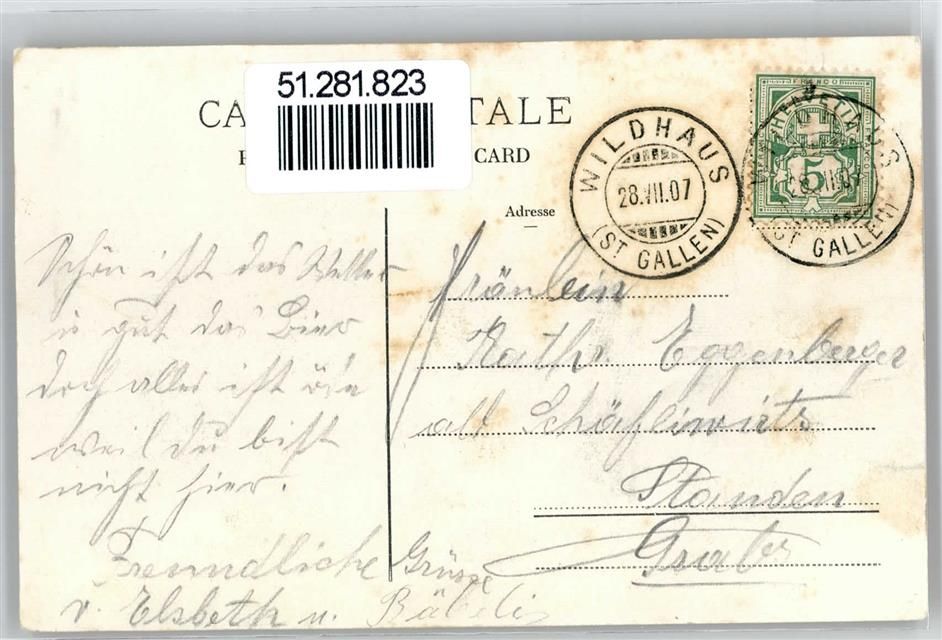 51.281.823
CA TALE
CARD
Adresse
WILDHAUS
28.VII.07
(ST GALLEN)
FRANCO
HELVETIA
5
28.VII.07
(ST GALLEN)
Schön ist das Wetter
u gut das Bier
doch alles ist öde
weil du bist
nicht hier.
Freundliche Grüsse
v. Elsbeth u. Bäbeli
Fräulein
Kathr. Eggenberger
alt Schäfliwirts
Standen
Grabs